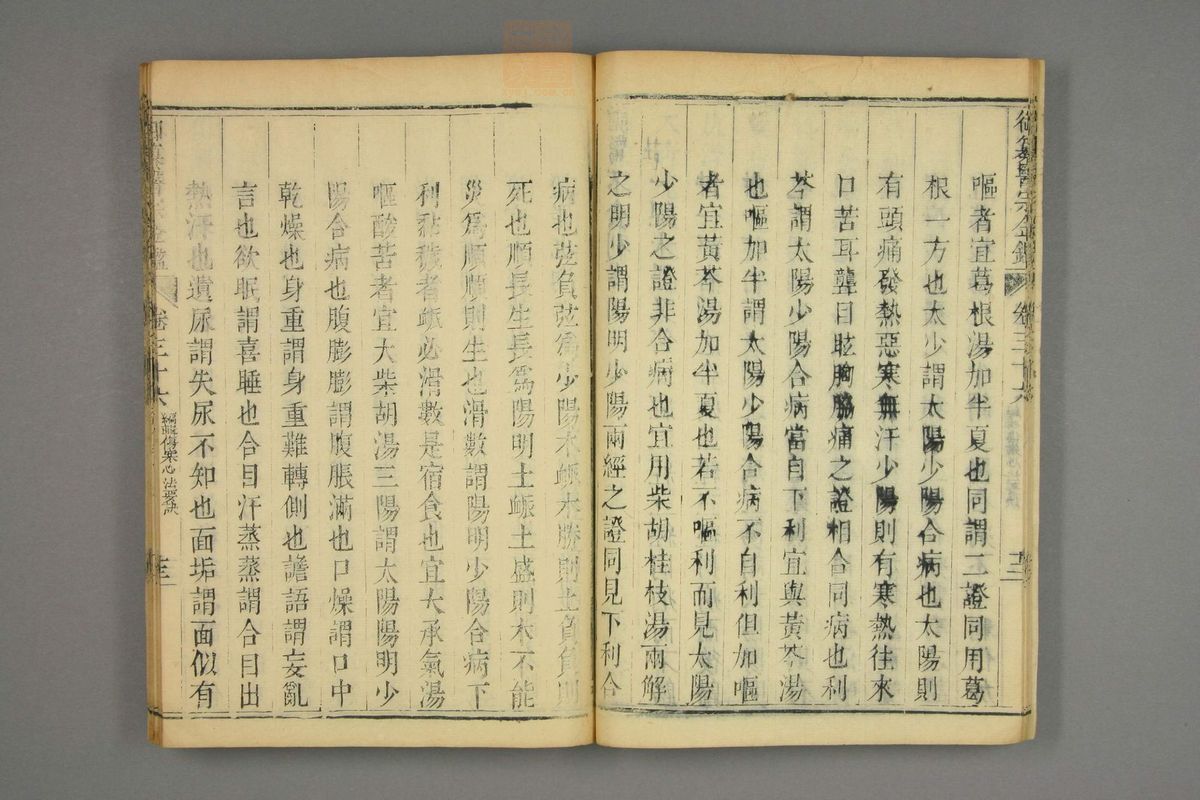 御纂醫宗金鑑
卷三十六
十三
嘔者宜葛根湯加半夏也同謂二證同用葛
根一方也太少謂太陽少陽合病也太陽則
有頭痛發熱惡寒無汗少陽則有寒熱往來
口苦耳聾目眩胸脇痛之證相合同病也利
芩謂太陽少陽合病當自下利宜與黃芩湯
也嘔加半謂太陽少陽合病不自利但加嘔
者宜黃芩湯加半夏也若不嘔利而見太陽
少陽之證非合病也宜用柴胡桂枝湯兩解
之明少謂陽明少陽兩經之證同見下利合
病也弦負弦爲少陽木衇木勝則土負負則
死也順長生長爲陽明土衇土盛則木不能
災爲順順則生也滑數謂陽明少陽合病下
利黏穢者衇必滑數是宿食也宜大承氣湯
嘔酸苦者宜大柴胡湯三陽謂太陽陽明少
陽合病也腹膨膨謂腹脹滿也口燥謂口中
乾燥也身重謂身重難轉側也譫語謂妄亂
言也欲眠謂喜睡也合目汗蒸蒸謂合目出
熱汗也遺尿謂失尿不知也面垢謂面似有
卷三十六
編輯傷寒心法要訣